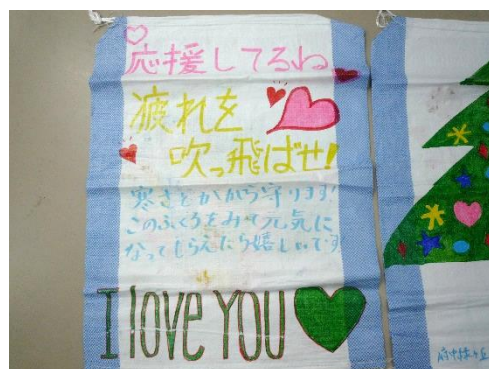 応援してるね
疲れを
吹っ飛ばせ!
寒さとかから守ります!
このふくろをみて元気に
なってもらえたら嬉しいです
I love YOU